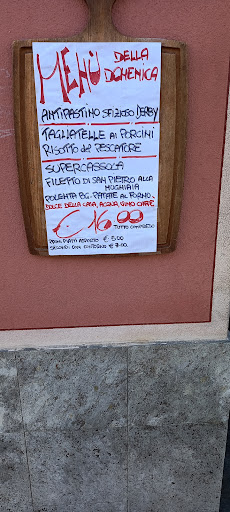 MENÙ DELLA
DOMENICA
ANTIPASTINO SFIZIOSO DERBY
TAGLIATELLE AI PORCINI
RISOTTO DEL PESCATORE
SUPERCASSOLA
FILETTO DI SAN PIETRO ALLA
MUGNAIA
POLENTA BG. PATATE AL FORNO.
DOLCE DELLA CASA, ACQUA, VINO CAFFÈ
€ 16.00
TUTTO COMPRESO
PRIMI PIATTI ASPORTO € 5.00
SECONDI CON CONTORNO € 7.00